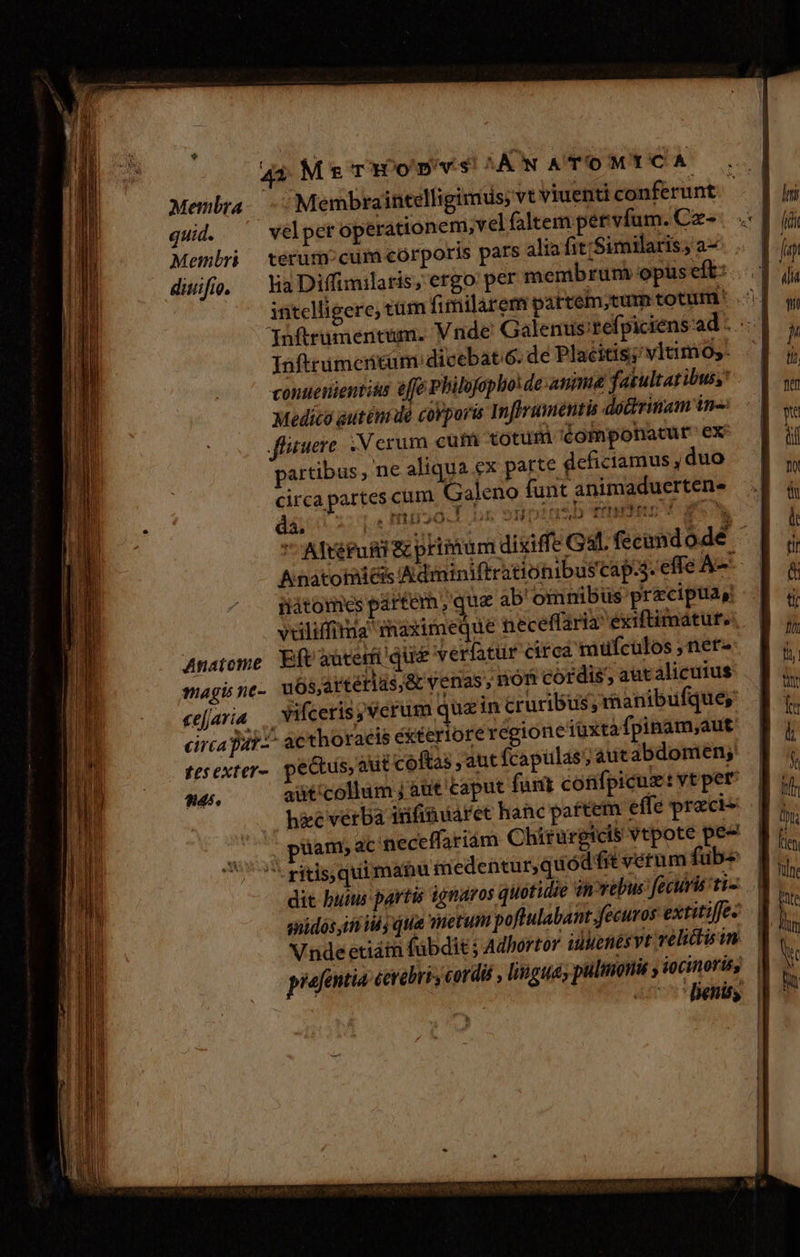 42 METHODVS ANATOMICA
Membra quid.
Membri diuisio.
Membra intelligimus, vt viuenti conferunt
vel per operationem, vel saltem per vsum. Cæ-
terum cum corporis pars alia sit Similaris, a-
lia Dissimilaris, ergo per membrum opus est:
intelligere, tùm similarem partem, tum totum
Instrumentum. Vnde Galenus respiciens ad
Instrumentum dicebat 6. de Placitis, vltimo,
conuenientius esse Philosopho de animæ facultatibus,
Medico autem de corporis Instrumentis doctrinam in-
stituere. Verum cum totum componatur ex
partibus, ne aliqua ex parte deficiamus, duo
circa partes cum Galeno sunt animaduerten-
da.
Alterum & primum dixisse Gal. secundo de
Anatomicis Administrationibus cap. 3. esse A-
natomes partem, quæ ab omnibus præcipua,
vtilissima maximeque necessaria existimatur.
Anatome magis ne- cessaria circa par- tes exter- nas.
Est autem quæ versatur circa musculos, ner-
uos, arterias, & venas, non cordis, aut alicuius
visceris, verum quæ in cruribus, manibusque,
ac thoracis exteriore regione iuxta spinam, aut
pectus, aut costas, aut scapulas, aut abdomen,
aut collum, aut caput sunt conspicuæ: vt per
hæc verba insinuaret hanc partem esse præci-
puam, ac necessariam Chirurgicis vtpote pe-
ritis, qui manu medentur, quod sit verum sub-
dit huius partis ignaros quotidie in rebus securis ti-
midos, in iis, quæ metum postulabant securos extitisse.
Vnde etiam subdit; Adhortor iuuenes vt relictis in
præsentia cerebri, cordis, linguæ, pulmonis, iocinoris,
lienis,